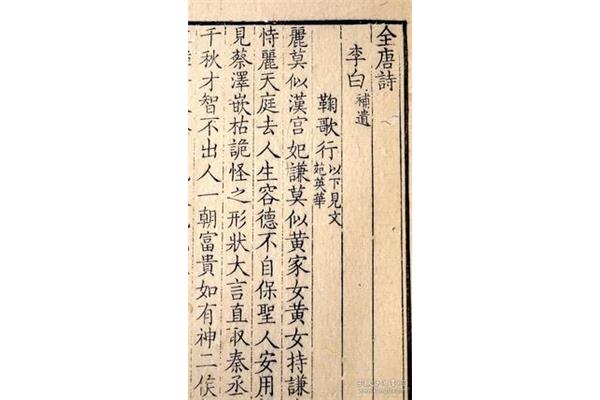 全唐詩
李白補遺
鞠歌行以下見文苑英華
麗莫似漢宮妃謙莫似黄家女黄女持謙
恃麗天庭去人生容德不自保聖人安用
見蔡澤嵌枯詭怪之形狀大言直取秦丞
千秋才智不出人一朝富貴如有神二侯